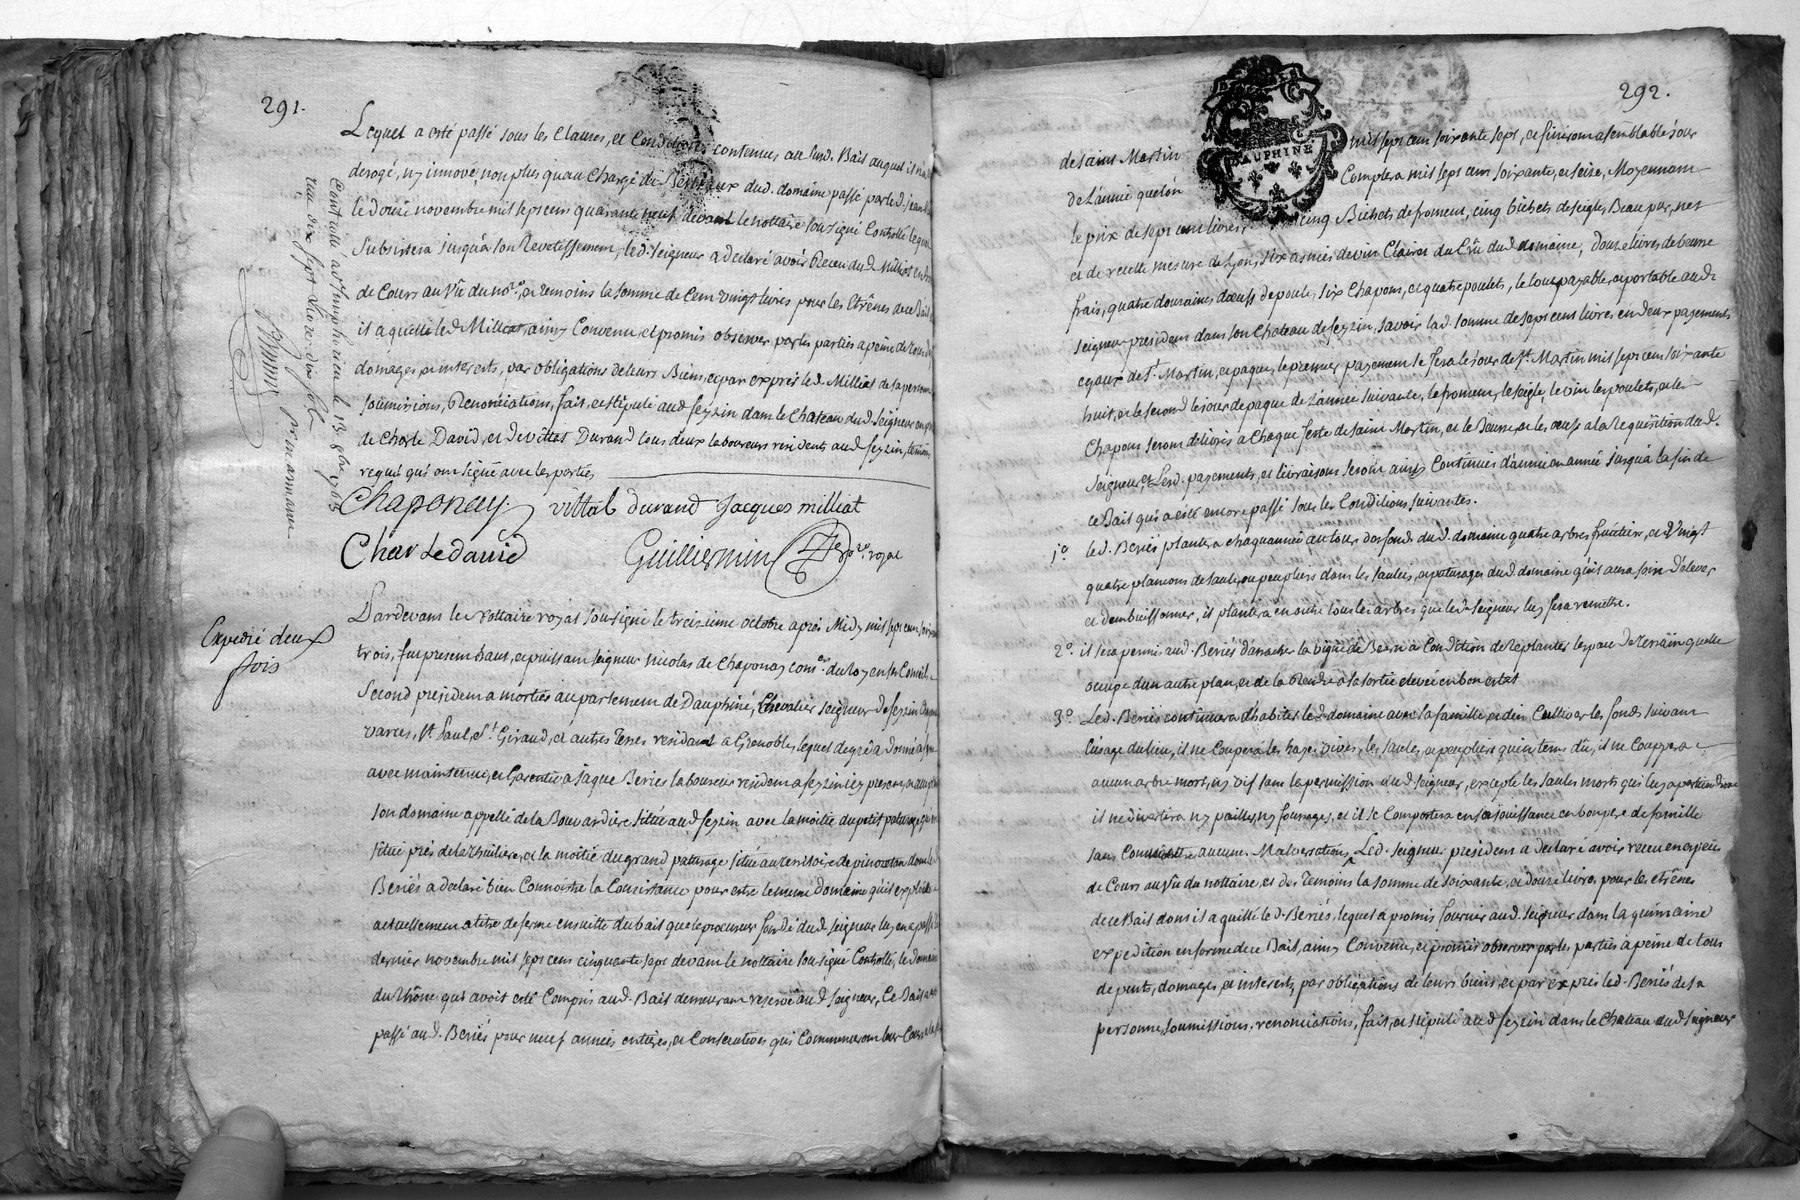 291.
Lequel a esté passé sous les Clauses, et Conditions contenues au susd. Bail auquel il n'a
derogé, ny innové, non plus qu'au Chargé de Bestiaux dud. domaine passé par led. jean
le douze novembre mil sept cens quarante neuf, devant le nottaire soussigné Controllé lequel
Subsistera jusqu'a son Revetissement, led. Seigneur a declaré avoir Receu dud. Milliat
de Cours au Vû du no.re, et temoins la somme de Cent vingt livres pour les Etrênes de ce Bail
il a quitté led. Milliat, ainsy Convenu, et promis observer par les parties a peine de tous d.
domages, et interests, par obligations de leurs Biens, et par exprés led. Milliat de sa personne
soumissions, Renonciations, fait, et stipulé aud. seyzin dans le Chateau dud. Seigneur en p.
de Charle David, et de vittal Durand tous deux laboureurs residents aud. seyzin, temoins
requis qui ont signé avec les parties
Chaponay. vittal durand Jacques milliat
Charle david Guilliermin no.re royal
Controllé a St Simphorien le 13. 8bre 1763
reçu dix sept livres dix sols
Expedié deux
fois
Pardevant le Nottaire royal soussigné le treizieme octobre aprés Midy mil sept cent soixante
trois, fut present haut, et puissant seigneur Nicolas de Chaponay cons.er du roy en ses Conseils
Second president a mortier au parlement de Dauphiné, Chevalier seigneur de seyzin
varces, St. Paul, St. Giraud, et autres Terres resident a Grenoble, lequel de gré a donné a ferme
avec maintenue, et Garentie a jaque Beriés laboureur resident a seyzin icy present, et acceptant
son domaine appellé de la Bouvardiere situé aud. seyzin avec la moitié du petit paturage
situé prés de la thuiliere, et la moitié du grand paturage situé au territoire de pinoutan dont led.
Beriés a declaré bien Connoistre la Consistance pour estre le meme domaine qu'il exploite
actuellement a titre de ferme ensuitte du bail que le procureur fondé dud. seigneur luy en a passé le
dernier novembre mil sept cens cinquante sept devant le nottaire soussigné Controllé, le domaine
du Rhône qui avoit esté Compris aud. Bail demeurant reservé aud. seigneur, Ce Bail
passé aud. Beriés pour neuf années entieres, et Consecutives qui Commenceront leur Cours a la
292.
DAUPHINÉ
de saint Martin mil sept cent soixante sept, et finiront a semblable jour
de l'année que l'on Comptera mil sept cent soixante, et seize, Moyennant
le prix de sept cent livres, cinq Bichets de froment, cinq bichets de seigle, Beau pur, net
et de recette mesure de Lyon, six asnées de vin Clairet du Crû dud. domaine, douze livres de beurre
frais, quatre douzaines d'œufs de poule, six Chapons, et quatre poulets, le tout payable, et portable aud.
seigneur president dans son Chateau de seyzin, savoir lad. somme de sept cent livres en deux payements
egaux de St. Martin, et paque, le premier payement se fera le jour de St. Martin mil sept cent soixante
huit, et le second le jour de paque de l'année suivante, le froment, le seigle, le vin les poulets, et les
Chapons seront delivrés a Chaque feste de saint Martin, et le Beurre, et les œufs a la Requisition dud.
Seigneur, et Lesd. payements, et livraisons seront ainsy Continués d'année en année jusqu'a la fin de
ce Bail qui a esté encore passé sous les Conditions suivantes.
1.o led. Beriés plantera chaqu'année autour des fonds dud. domaine quatre arbres fruitiers, et vingt
quatre plançons de saule, ou peupliers dans les saulées, et paturages dud. domaine qu'il aura soin d'elever
et d'embuissonner, il plantera en outre tous les arbres que led. seigneur luy fera remettre.
2.o il sera permis aud. Beriés d'arracher la vigne de à Condition de Replanter l'espace de terrain qu'elle
occupe d'un autre plan, et de la Rendre a sa sortie elevée en bon estat
3.o Led. Beriés continuera d'habiter led. domaine avec sa famille, et d'en Cultiver les fonds suivant
l'usage du lieu, il ne Coupera les hayes vives, les saules, et peupliers qu'en tems dû, il ne Couppera
aucun arbre mort, ny vif sans la permission dud. seigneur, excepté les saules morts qui luy apartiendront
il ne divertira ny pailles, ny fourages, et il se Comportera en sa jouissance en bon pere de famille
sans Commettre aucunes Malversations, Led. seigneur president a declaré avoir receu en especes
de Cours au vû du nottaire, et des temoins la somme de soixante, et douze livres pour les etrênes
de ce Bail dont il a quitté led. Beriés, lequel a promis fournir aud. seigneur dans la quinzaine
expedition en forme de ce Bail, ainsy Convenu, et promis observer par les parties a peine de tous
depents, domages, et interests, par obligations de leurs biens, et par exprés led. Beriés de sa
personne, soumissions, renonciations, fait, et stipulé aud. seyzin dans le Chateau dud. seigneur